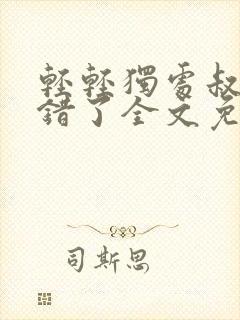 輕輕獨處叔
錯了全文免
司斯思